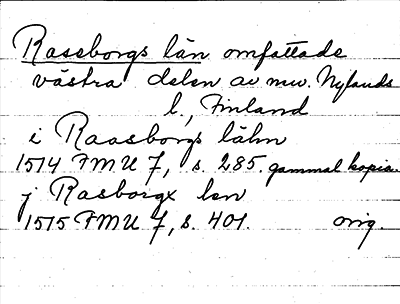 Raseborgs län omfattade
västra delen av nuv. Nylands
l, Finland
i Raasborgs lähn
1514 FMU 7, s. 285. gammal kopia.
j Rasborgx len
1515 FMU 7, s. 401. orig.